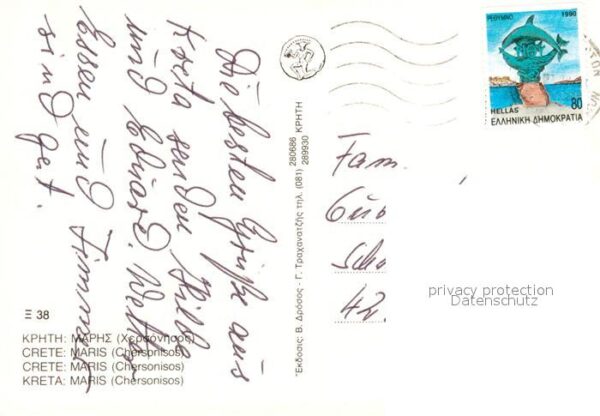 Die besten Grüße aus
Kreta senden Hilde
und Eduard. Wetter
Essen und Zimmer
sind gut.
Ξ 38
ΚΡΗΤΗ: ΜΑΡΗΣ (Χερσόνησος)
CRETE: MARIS (Chersonisos)
CRETE: MARIS (Chersonisos)
KRETA: MARIS (Chersonisos)
Έκδοσις: Β. Δρόσος - Γ. Τραχανατζής τηλ. (081) 280686 289930 ΚΡΗΤΗ
ΡΕΘΥΜΝΟ 1990
HELLAS 80
ΕΛΛΗΝΙΚΗ ΔΗΜΟΚΡΑΤΙΑ
Fam.
42
privacy protection
Datenschutz